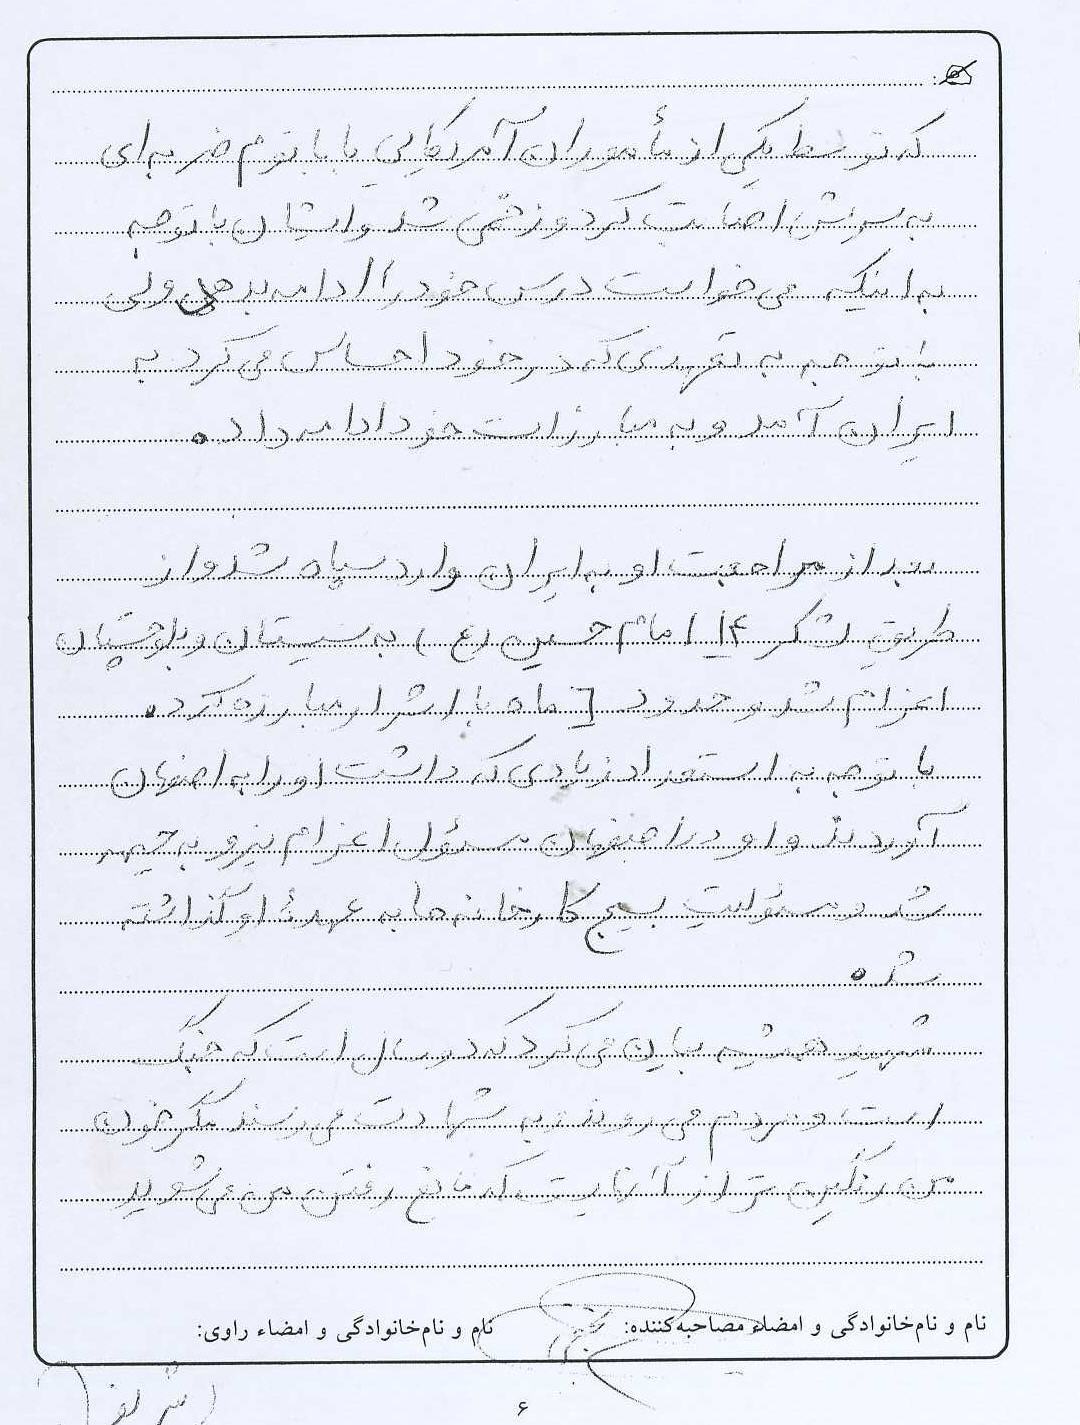 که توسط یکی از مأموران آمریکایی با باتوم ضربه‌ای
به سرش اصابت کرد و زخمی شد و ایشان با توجه
به اینکه می‌خواست درس خود را ادامه بدهد ولی
با توجه به تعهدی که در خود احساس می‌کرد به
ایران آمد و به مبارزات خود ادامه داد.
بعد از مراجعت او به ایران وارد سپاه شد و از
طریق لشکر ۱۴ امام حسین (ع) به سیستان و بلوچستان
اعزام شد و حدود ۶ ماه با اشرار مبارزه کرد.
با توجه به استعداد زیادی که داشت او را به اصفهان
آوردند و او در اصفهان مسئول اعزام نیرو به جبهه
شد و مسئولیت بسیج کارخانه‌ها به عهدۀ او گذاشته
شد.
شهید همیشه بیان می‌کرد که دو سال است که جنگ
است و مردم می‌روند و به شهادت می‌رسند مگر خون
من رنگین‌تر از آنهاست که مانع رفتن من می‌شوید
نام و نام‌خانوادگی و امضاء مصاحبه‌کننده:
نام و نام‌خانوادگی و امضاء راوی:
۶